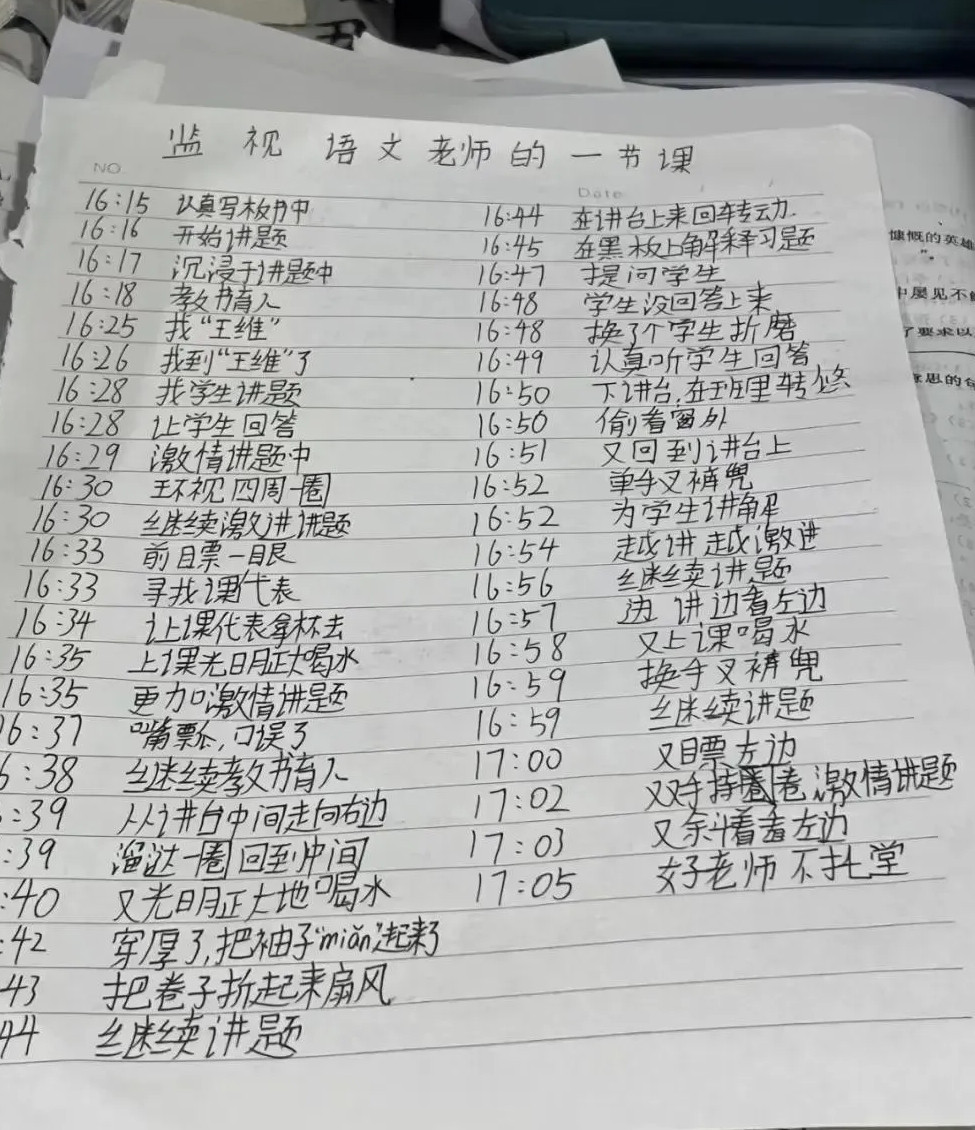 监视语文老师的一节课
NO.
Date
16:15 认真写板书中
16:16 开始讲题
16:17 沉浸于讲题中
16:18 教书育人
16:25 找“王维”
16:26 找到“王维”了
16:28 找学生讲题
16:28 让学生回答
16:29 激情讲题中
16:30 环视四周一圈
16:30 继续激进讲题
16:33 前瞟一眼
16:33 寻找课代表
16:34 让课代表拿杯去
16:35 上课光明正大喝水
16:35 更加激情讲题
16:37 嘴瓢,口误了
6:38 继续教书育人
:39 从讲台中间走向右边
:39 溜达一圈回到中间
:40 又光明正大地喝水
:42 穿厚了,把袖子“miǎn”起来了
43 把卷子折起来扇风
44 继续讲题
16:44 在讲台上来回转动.
16:45 在黑板上解释习题
16:47 提问学生
16:48 学生没回答上来
16:48 换了个学生折磨
16:49 认真听学生回答
16:50 下讲台,在班里转悠
16:50 偷看窗外
16:51 又回到讲台上
16:52 单手叉裤兜
16:52 为学生讲解
16:54 越讲越激进
16:56 继续讲题
16:57 边讲边看左边
16:58 又上课喝水
16:59 换手叉裤兜
16:59 继续讲题
17:00 又瞟左边
17:02 双手持圈卷激情讲题
17:03 又余斗看着左边
17:05 好老师不扥堂
慷慨的英雄
中屡见不
了要求以
意思的句